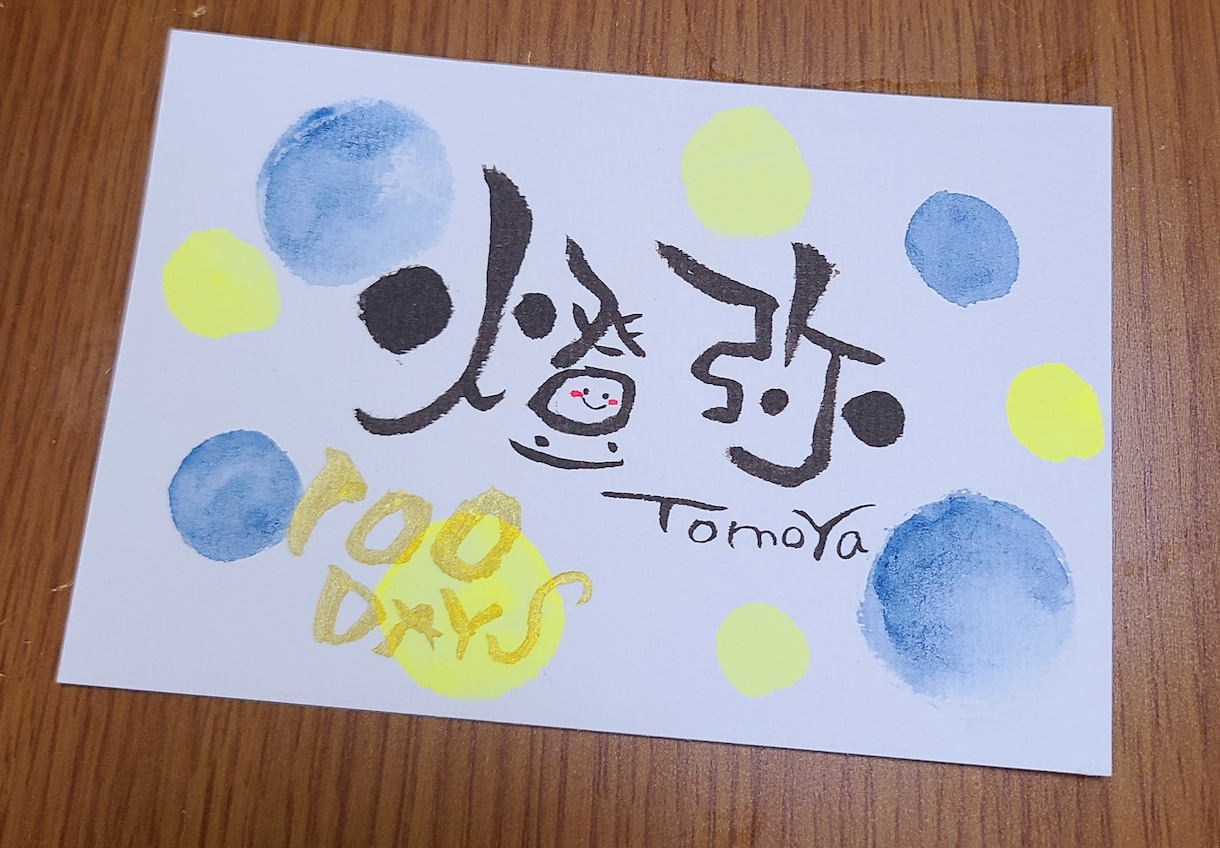 燈弥
TomoYa
100
DAYS